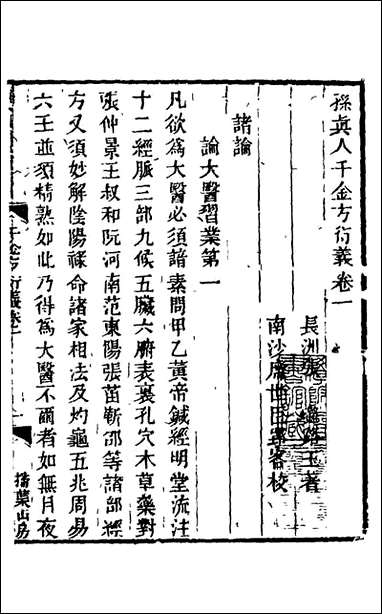 孫真人千金方衍義卷一
長洲張璐路玉著
南沙席世臣
校
諸論
論大醫習業第一
凡欲為大醫必須諳素問甲乙黃帝鍼經明堂流注
十二經脈三部九候五臟六腑表裏孔穴本草藥對
張仲景王叔和阮河南范東陽張苗靳邵等諸部經
方又須妙解陰陽祿命諸家相法及灼龜五兆周易
六壬並須精熟如此乃得為大醫不爾者如無目夜
千金方衍義卷一
掃葉山房